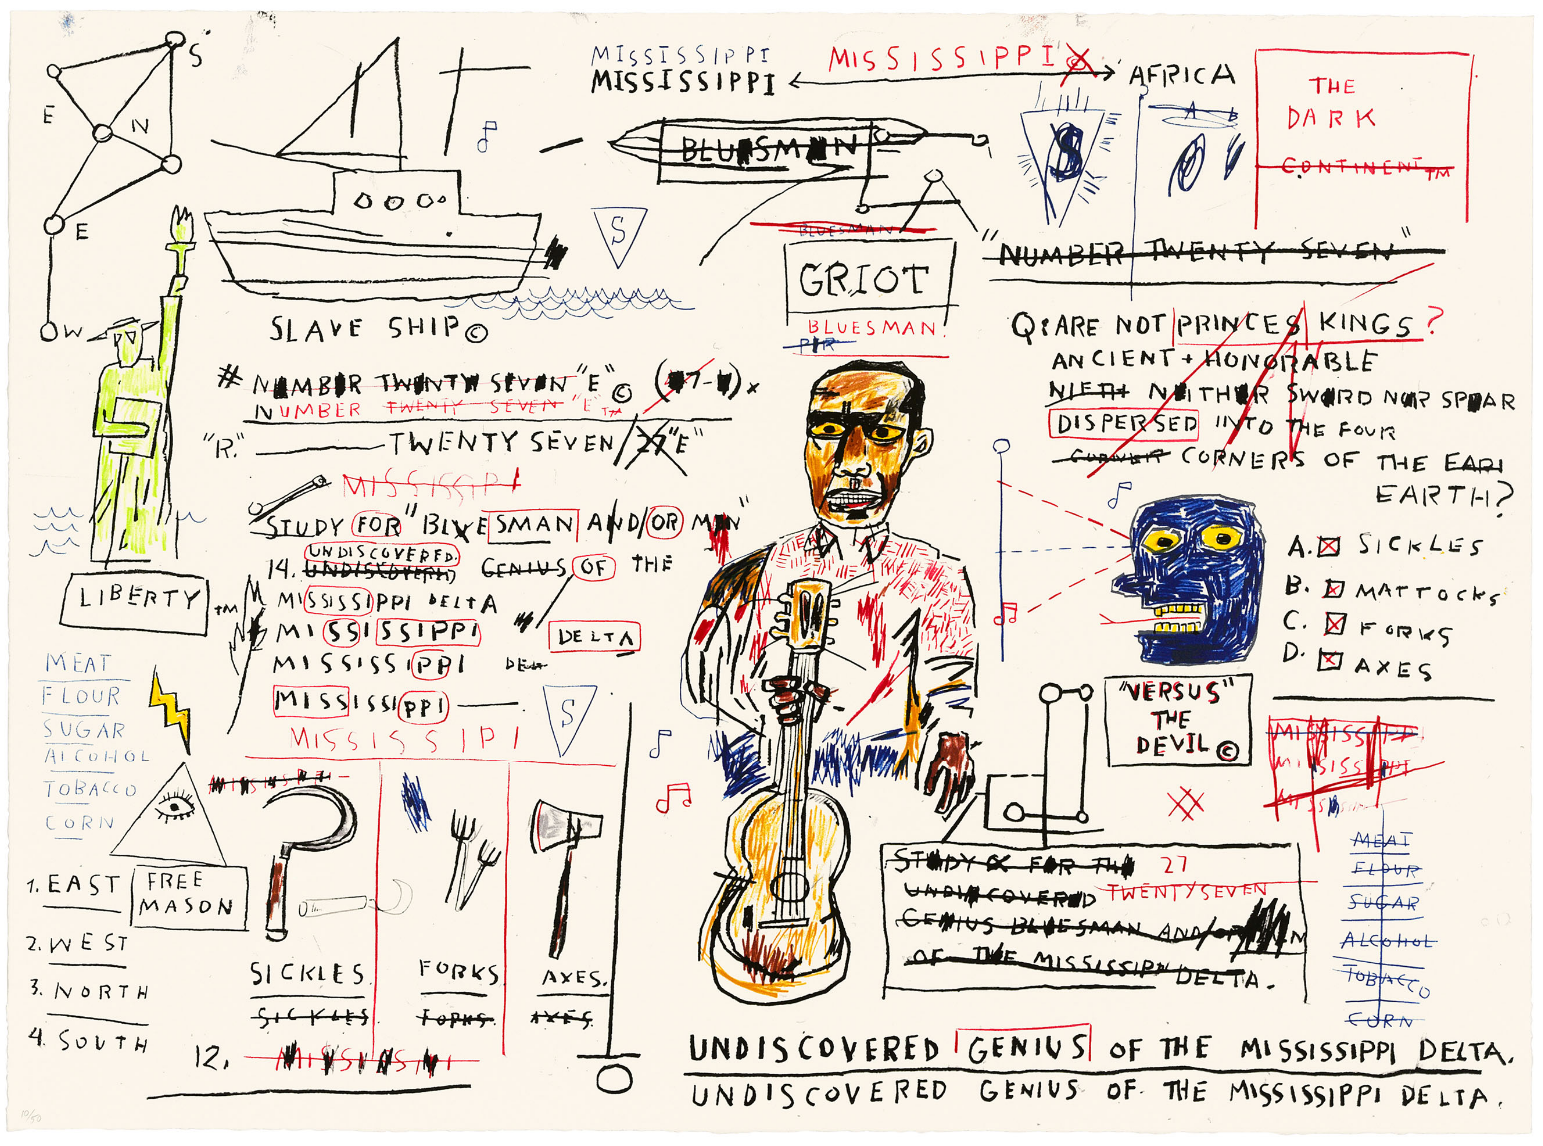 S
E
N
E
W
MISSISSIPPI
MISSISSIPPI
MISSISSIPPI ©
AFRICA
THE
DARK
CONTINENT TM
S
A B
BLUESMAN
BLUESMAN
GRIOT
BLUESMAN.
S
SLAVE SHIP ©
"NUMBER TWENTY SEVEN"
Q: ARE NOT PRINCES KINGS?
ANCIENT + HONORABLE
NIETH NEITHER SWORD NOR SPEAR
DISPERSED INTO THE FOUR
CORNER CORNERS OF THE EARI
EARTH?
A. SICKLES
B. MATTOCKS
C. FORKS
D. AXES
# NUMBER TWENTY SEVEN "E" © (27-
NUMBER TWENTY SEVEN "E" TM
"R." TWENTY SEVEN / 27 "E"
MISSISSIPI
STUDY FOR "BLUESMAN AND/OR MAN"
UNDISCOVERED.
14. UNDISCOVERED GENIUS OF THE
MISSISSIPPI DELTA
MISSISSIPPI
DELTA
MISSISSIPPI DELT
MISSISSIPPI
MISSISSIPI
S
LIBERTY TM
MEAT
FLOUR
SUGAR
ALCOHOL
TOBACCO
CORN
FREE
MASON
1. EAST
2. WEST
3. NORTH
4. SOUTH
SICKLES.
SICKLES
FORKS
FORKS.
AXES.
AXES.
12. MISSISSIPI
"VERSUS"
THE
DEVIL ©
MISSISSIPPI
MISSISSIPPI
MISSI
STUDY FOR THE 27
UNDISCOVERED TWENTYSEVEN
GENIUS BLUESMAN AND/OR MAN
OF THE MISSISSIPPI DELTA.
MEAT
FLOUR
SUGAR
ALCOHOL
TOBACCO
CORN
UNDISCOVERED GENIUS OF THE MISSISSIPPI DELTA.
UNDISCOVERED GENIUS OF THE MISSISSIPPI DELTA.
10/50